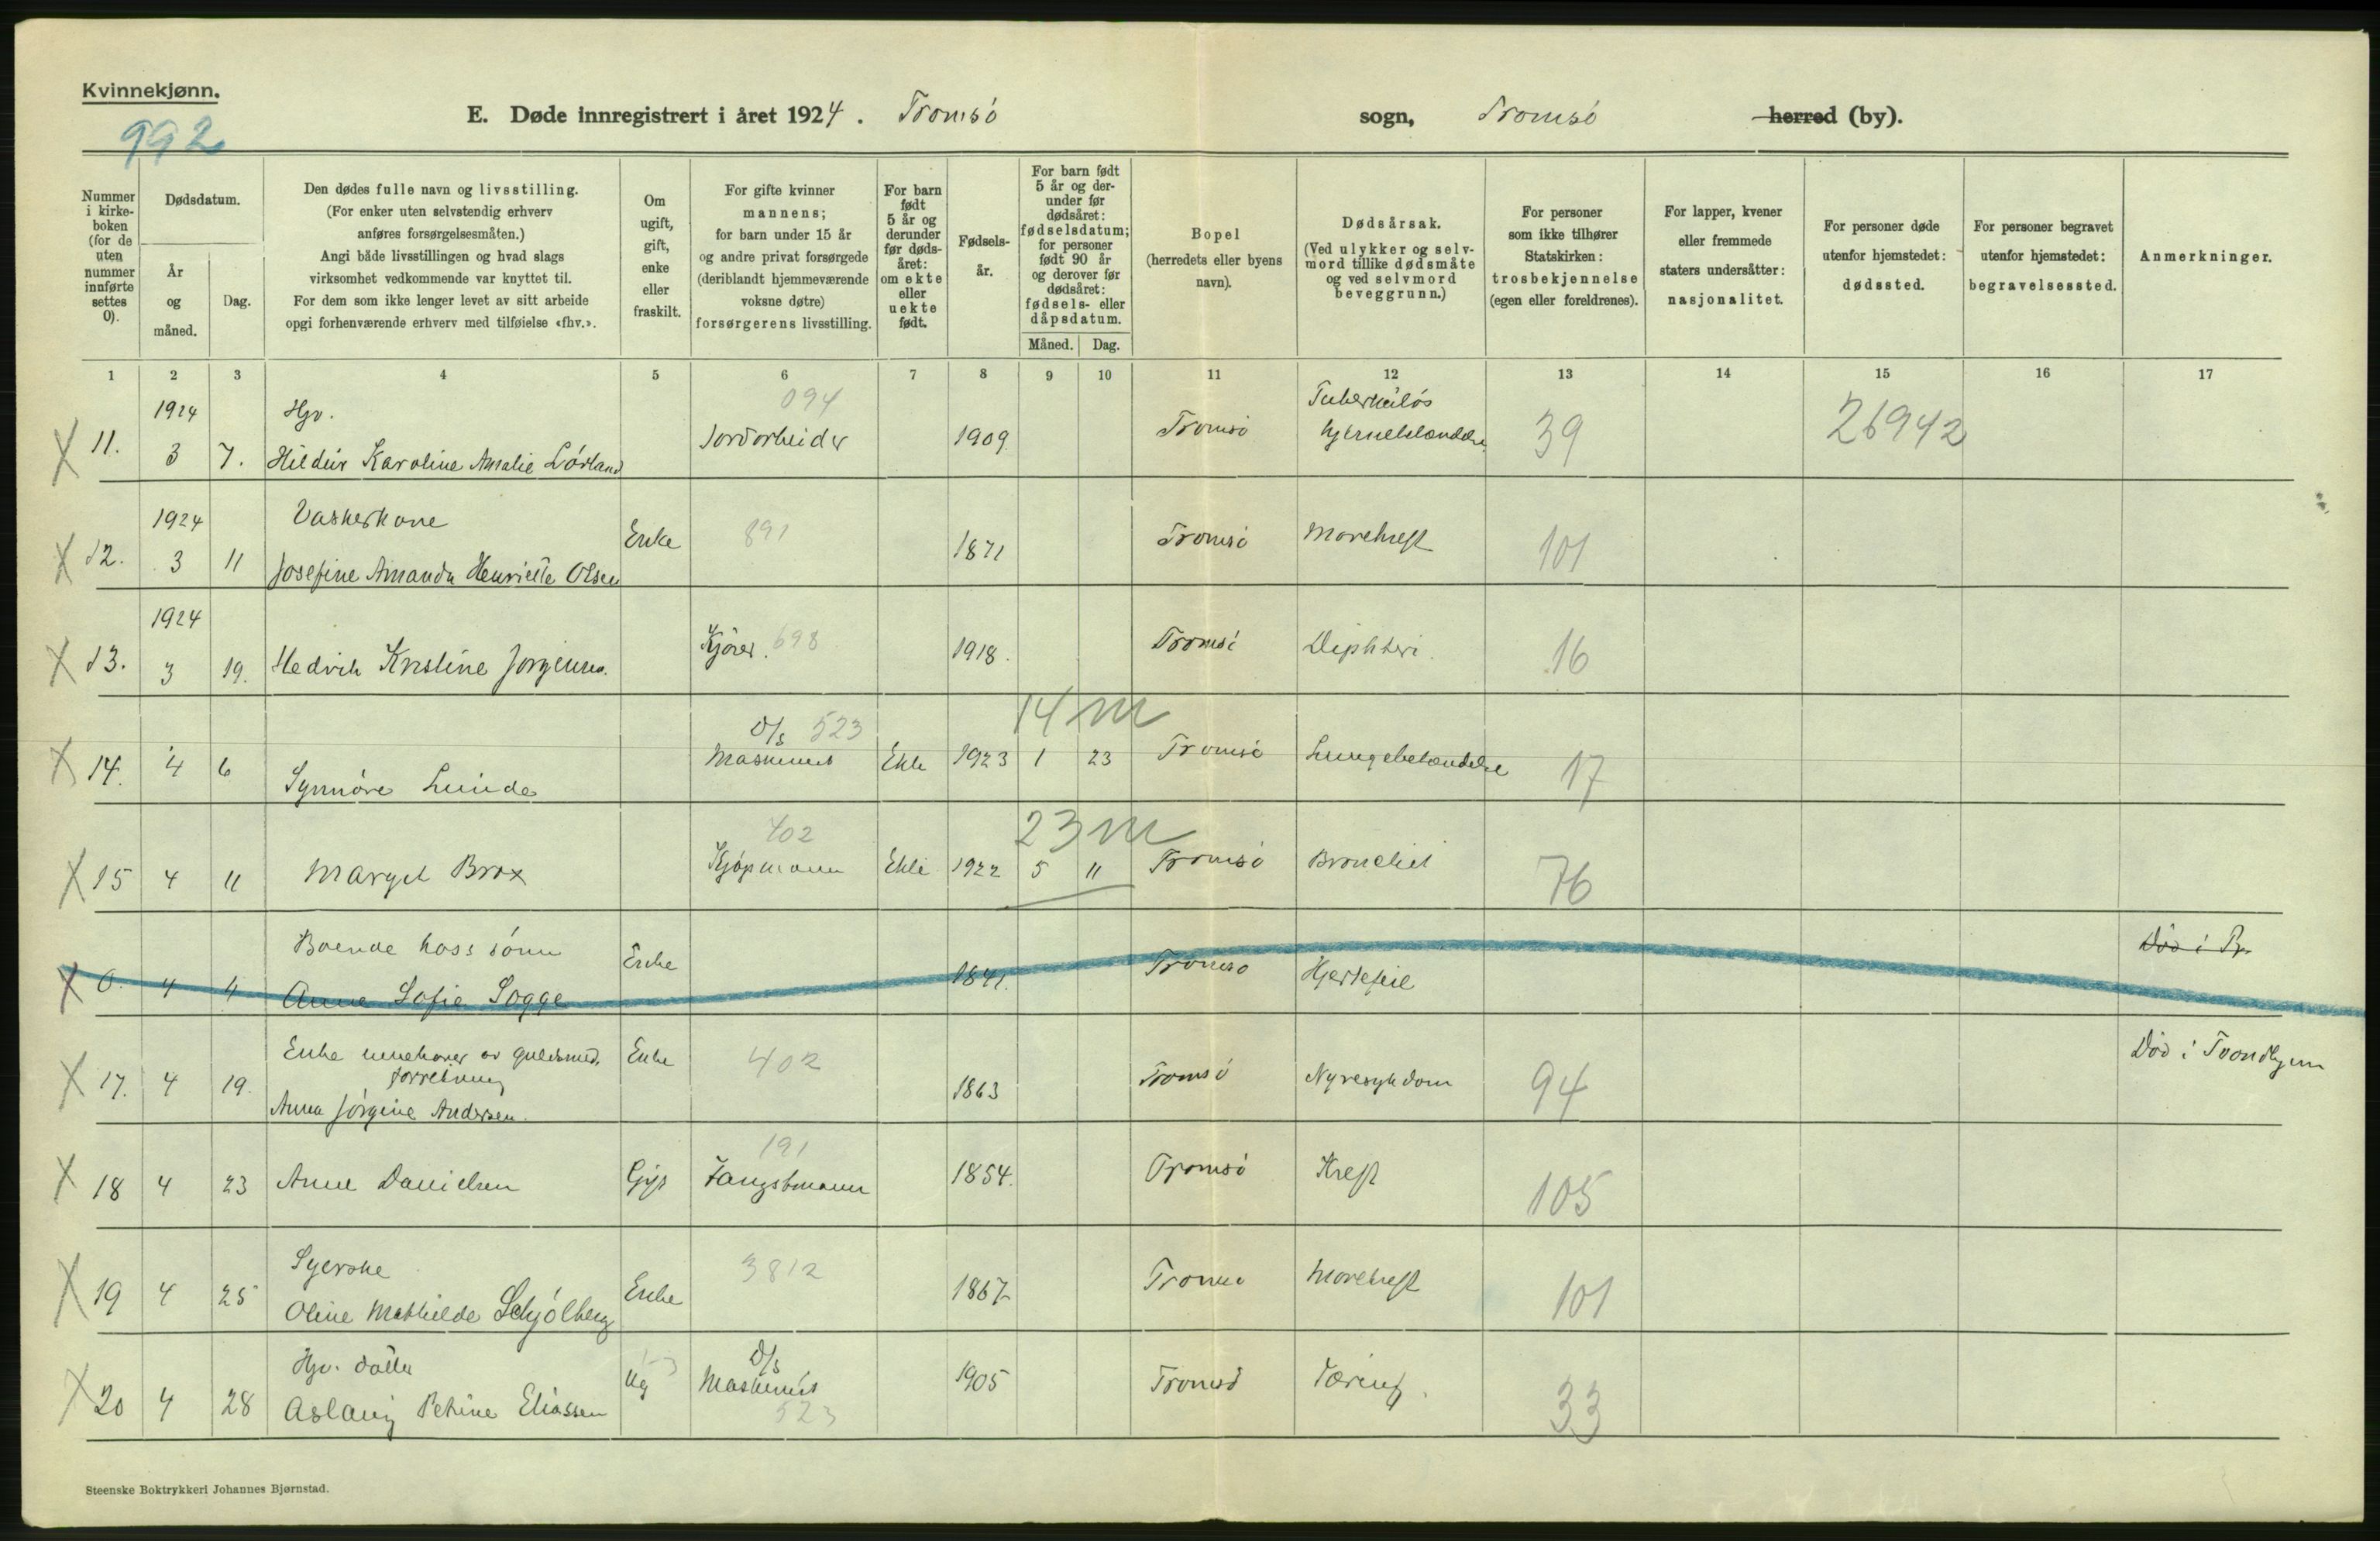 Kvinnekjønn.
992
E. Døde innregistrert i året 1924. Tromsö sogn, Tromsö herred (by).
Nummer i kirke-boken (for de uten nummer innførte settes 0).
Dødsdatum.
År og måned.
Dag.
Den dødes fulle navn og livsstilling.
(For enker uten selvstendig erhverv
anføres forsørgelsesmåten.)
Angi både livsstillingen og hvad slags
virksomhet vedkommende var knyttet til.
For dem som ikke lenger levet av sitt arbeide
opgi forhenværende erhverv med tilføielse «fhv.».
Om ugift, gift, enke eller fraskilt.
For gifte kvinner
mannens;
for barn under 15 år
og andre privat forsørgede
(deriblandt hjemmeværende
voksne døtre)
forsørgerens livsstilling.
For barn født 5 år og derunder før døds-året: om ekte eller uekte født.
Fødsels-år.
For barn født 5 år og der-under før dødsåret: fødselsdatum; for personer født 90 år og derover før dødsåret: fødsels- eller dåpsdatum.
Måned. Dag.
Bopel
(herredets eller byens
navn).
Dødsårsak.
(Ved ulykker og selv-
mord tillike dødsmåte
og ved selvmord
beveggrunn.)
For personer
som ikke tilhører
Statskirken:
trosbekjennelse
(egen eller foreldrenes).
For lapper, kvener
eller fremmede
staters undersåtter:
nasjonalitet.
For personer døde
utenfor hjemstedet:
dødssted.
For personer begravet
utenfor hjemstedet:
begravelsessted.
Anmerkninger.
1 2 3 4 5 6 7 8 9 10 11 12 13 14 15 16 17
1924 Hjv. 094 Tuberkulös
11. 3 7. Hildur Karoline Amalie Lörland Jordarbeider 1909. Tromsö hjernebetændelse. 39 26942
1924 Vaskerkone
12. 3 11 Josefine Amanda Henriette Olsen Enke 891 1871 Tromsö Mavekreft 101
1924
13. 3 19. Hedvik Kristine Jörgensen. Kjörer. 698 1918. Tromsö Diphteri. 16
D/s 523 14 m
14. 4 6 Synnöve Lunde Maskinist Ekte 1923 1 23 Tromsö Lungebetændelse 17
402 23 m
15 4 11 Margit Brox Kjöpmann Ekte 1922 5 11 Tromsö Bronchit 76
Boende hos sönn Död i Tr.
0. 4 4 Anne Sofie Sogge Enke 1841. Tromsö Hjertefeil
Enke innehaver av guldsmed. Död i Trondhjem
forretning
17. 4 19. Anna Jörgine Andersen. Enke 402 1863 Tromsö Nyresykdom 94
191
18 4 23 Anne Danielsen Gift Fangstmann 1854. Tromsö Kreft 105
Syerske
19 4 25 Oline Mathilde Schjölberg Enke 3812 1867 Tromsö Mavekreft 101
Hjv. datter D/s
20 4 28 Aslaug Petrine Eliassen Ug Maskinist 1905 Tromsö Tæring. 33
523
Steenske Boktrykkeri Johannes Bjørnstad.